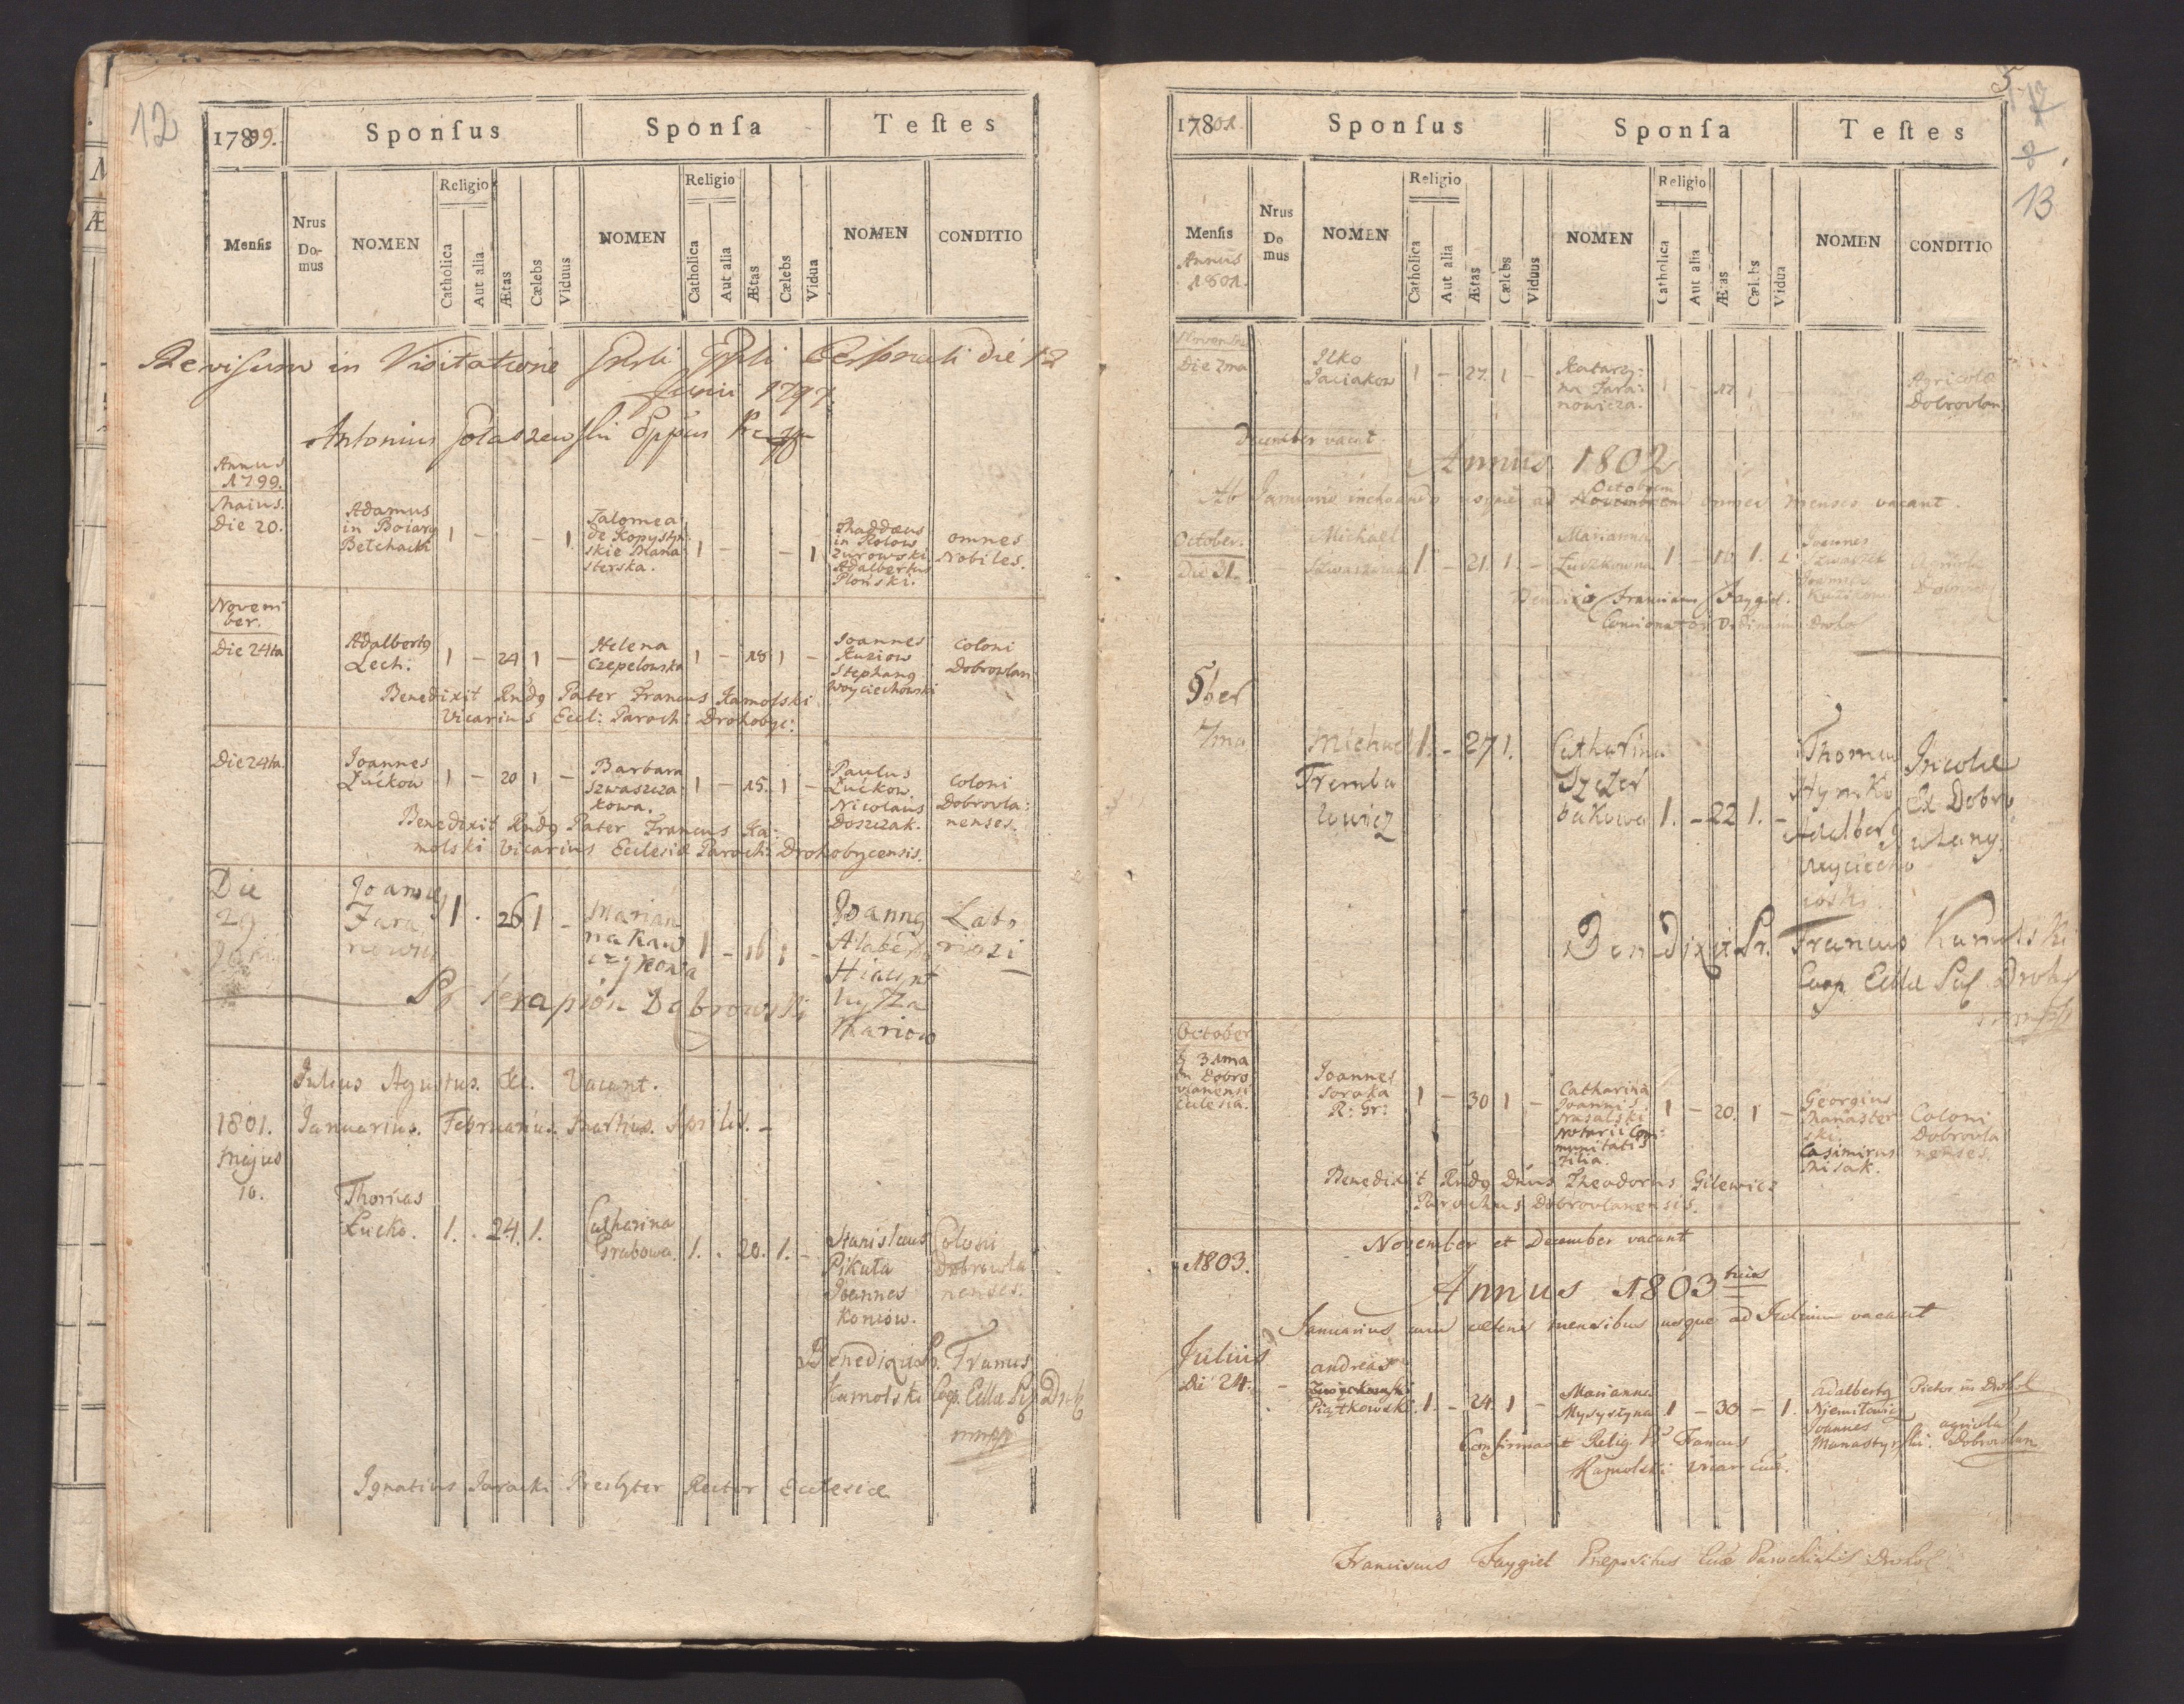 12
1799.
Sponſus
Sponſa
Teſtes
Menſis
Nrus
Do-
mus
NOMEN
Religio
Catholica
Aut alia
Ætas
Cælebs
Viduus
NOMEN
Religio
Catholica
Aut alia
Ætas
Cælebs
Vidua
NOMEN
CONDITIO
Reviſum in Visitatione die 12
Junii 1797
Antonius Gołaszewſki Eppus
Annus
1799.
Maius.
Die 20.
Adamus
in Boiary
Betchacki
1 - - 1
Salomea
de Kopystyn
skie Mana
sterska.
1 - - 1
Thaddæus
in Rolow
Zurowski
Adalbertus
Płonski.
omnes
Nobiles.
Novem
ber.
Die 24ta
Adalbertg
Lech.
1 - 24 1 -
Helena
Czepelowska
1 - 18 1 -
Joannes
Kuziow
Stephang
Woyciechowski
Coloni
Dobrovlan
Benedixit Rndg Pater Francus Kamolski
Vicarius Eccl: Paroch: Drohobyc:
Die 24ta.
Joannes
Łućkow
1 - 20 1 -
Barbara
Szwaszcza
kowa.
1 - 15. 1 -
Paulus
Łućkow.
Nicolaus
Doszczak.
Coloni
Dobrovla:
nenses.
Benedixit Rndg Pater Francus Ka:
molski Vicarius Ecclesiæ Paroch: Drohobycensis.
Die
29
Joanng
Zara
nowicz
1 . 26 1 -
Marian
na Kaw
czykowia
1 - 16 1 -
Joanng
Hiacint
Mariow
Labo
riozi
Pr Serapion Dąbrowſki
Julius Agustus. &c. Vacant.
1801. Januarius. Februarius. Martius. Aprilis. -
Majus
16.
Thomas
Łucko.
1. . 24. 1.
Catharina
Grabowa.
1. . 20. 1. -
Stanislaus
Pikuła
Joannes
Koniow.
Coloni
Dobrowla
nenses.
Benedixit Pr. Francus
Kamolski Coop. Eccl
Ignatius Jaracki Presbyter Rector Ecclesiæ
5
12
8
13
17801.
Sponſus
Sponſa
Teſtes
Menſis
Annus
1801.
Nrus
Do
mus
NOMEN
Religio
Catholica
Aut alia
Ætas
Cælebs
Viduus
NOMEN
Religio
Catholica
Aut alia
Ætas
Cælebs
Vidua
NOMEN
CONDITIO
November
Die 7ma
Ilko
Jaciakow
1 - 27. 1 -
Katarzy:
na Tara:
nowicza.
1 - 17 1 -
Agricolæ
Dobrovlan
December vacat.
Annus 1802
Octobrem
Ab Januario inchoando usque ad Novembrem omnes menses vacant.
October.
Die 31.
Michael
Szwaszczak
1. - 21. 1. -
Marianna
Łuczkowna
1. - 16 1. -
Joannes
Szwaszcz
Franciscus Jaygiel.
Concionator Drohob
9ber
7ma
Michael
Tremba
łowicz
1. - 27 1.
Catharina
Szczer
bakowa
1. - 22 1. -
Thomas
Hymko
Adalberg
Woyciecho
wski.
Incolæ
Ex Dobro
wlany.
Bendixit Pr. Francus Kamolski
Coop. Eccl Drohob
October
31ma
in Dobro
vlanensi
Ecclesia.
Joannes
Soroka
R: Gr:
1 - 30 1 -
Catharina
Joannis
Notarii Com:
munitatis
Filia.
1 - 20. 1 -
Georgius
Manaster
ski.
Casimirus
Misak.
Coloni
Dobrovla
nenses.
Benedixit Rndg Dnus Theodorus Gilewicz
Parochus Dobrovlanensis.
November et December vacant
1803.
Annus 1803tius
Januarius cum cæteris mensibus usque ad Julium vacant
Julius
Die 24.
Andreas
Piątkowski.
1. - 24. 1 -
Marianna
Mysystyna
1 - 30 - 1.
Adalbertg
Niemiłowicz
Joannes
Manastyrski.
Pictor in Drohob
agricola
Dobrovlan
Confirmavit Relig. Pr Francus
Kamolski Vicarius.
Franciscus Jaygiel Præpositus Ecclæ Parochialis Drohob